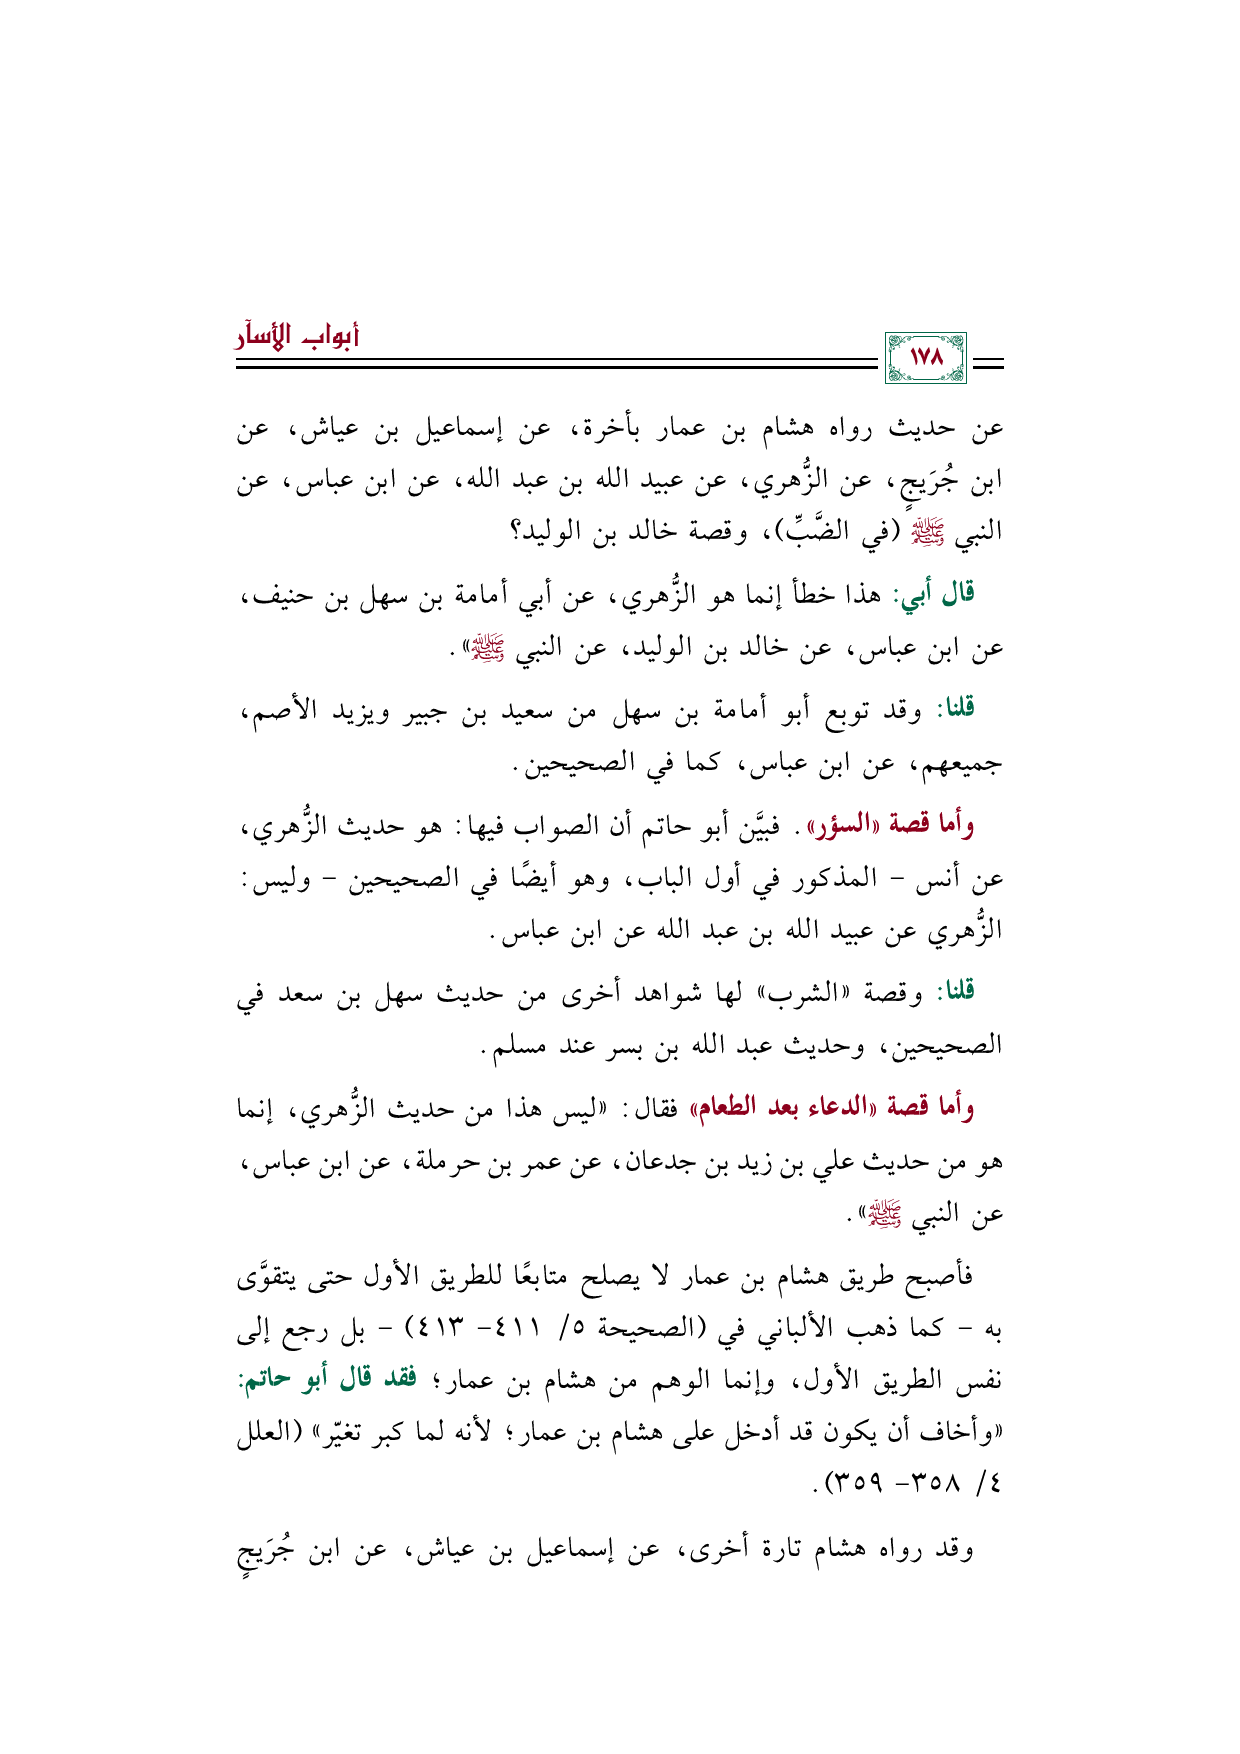 أبواب الأسآر
١٧٨
عن حديث رواه هشام بن عمار بأخرة، عن إسماعيل بن عياش، عن
ابن جُرَيجٍ، عن الزُّهري، عن عبيد الله بن عبد الله، عن ابن عباس، عن
النبي ﷺ (في الضَّبِّ)، وقصة خالد بن الوليد؟
قال أبي: هذا خطأ إنما هو الزُّهري، عن أبي أمامة بن سهل بن حنيف،
عن ابن عباس، عن خالد بن الوليد، عن النبي ﷺ».
قلنا: وقد توبع أبو أمامة بن سهل من سعيد بن جبير ويزيد الأصم،
جميعهم، عن ابن عباس، كما في الصحيحين.
وأما قصة «السؤر». فبيَّن أبو حاتم أن الصواب فيها: هو حديث الزُّهري،
عن أنس – المذكور في أول الباب، وهو أيضًا في الصحيحين – وليس:
الزُّهري عن عبيد الله بن عبد الله عن ابن عباس.
قلنا: وقصة «الشرب» لها شواهد أخرى من حديث سهل بن سعد في
الصحيحين، وحديث عبد الله بن بسر عند مسلم.
وأما قصة «الدعاء بعد الطعام» فقال: «ليس هذا من حديث الزُّهري، إنما
هو من حديث علي بن زيد بن جدعان، عن عمر بن حرملة، عن ابن عباس،
عن النبي ﷺ».
فأصبح طريق هشام بن عمار لا يصلح متابعًا للطريق الأول حتى يتقوَّى
به – كما ذهب الألباني في (الصحيحة ٥/ ٤١١– ٤١٣) – بل رجع إلى
نفس الطريق الأول، وإنما الوهم من هشام بن عمار؛ فقد قال أبو حاتم:
«وأخاف أن يكون قد أدخل على هشام بن عمار؛ لأنه لما كبر تغيّر» (العلل
٤/ ٣٥٨– ٣٥٩).
وقد رواه هشام تارة أخرى، عن إسماعيل بن عياش، عن ابن جُرَيجٍ